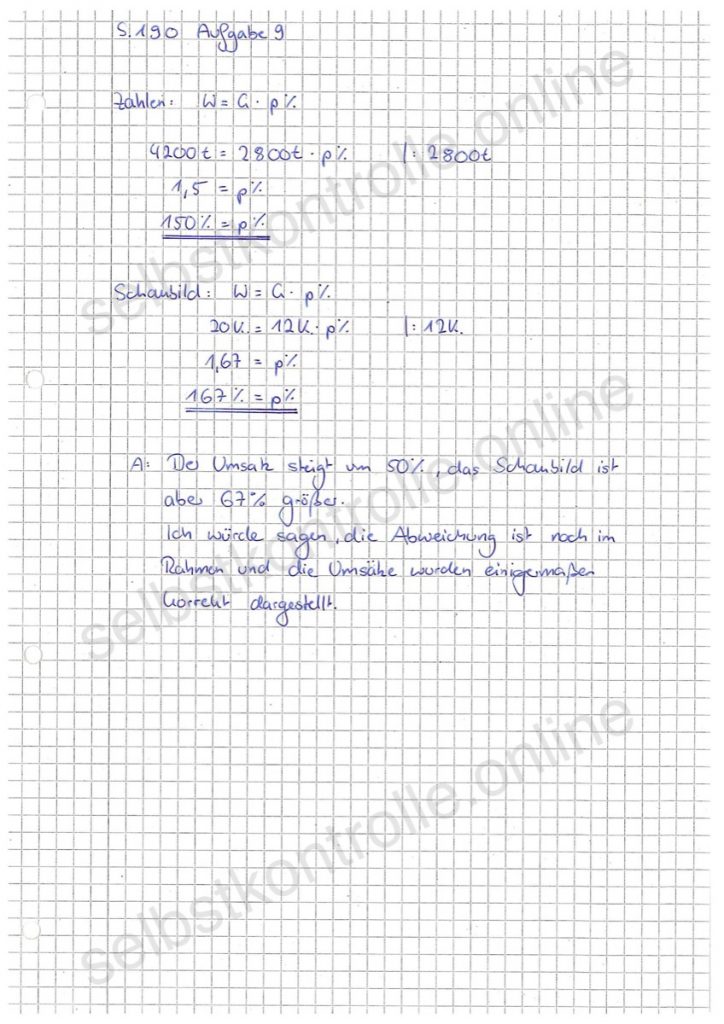 S.190 Aufgabe 9
Zahlen: W = G · p%
4200t = 2800t · p% |: 2800t
1,5 = p%
150% = p%
Schaubild: W = G · p%
20K. = 12K. · p% |: 12K.
1,67 = p%
167% = p%
A: Der Umsatz steigt um 50%, das Schaubild ist
aber 67% größer.
Ich würde sagen, die Abweichung ist noch im
Rahmen und die Umsätze wurden einigermaßen
korrekt dargestellt.
selbstkontrolle.online
selbstkontrolle.online
selbstkontrolle.online